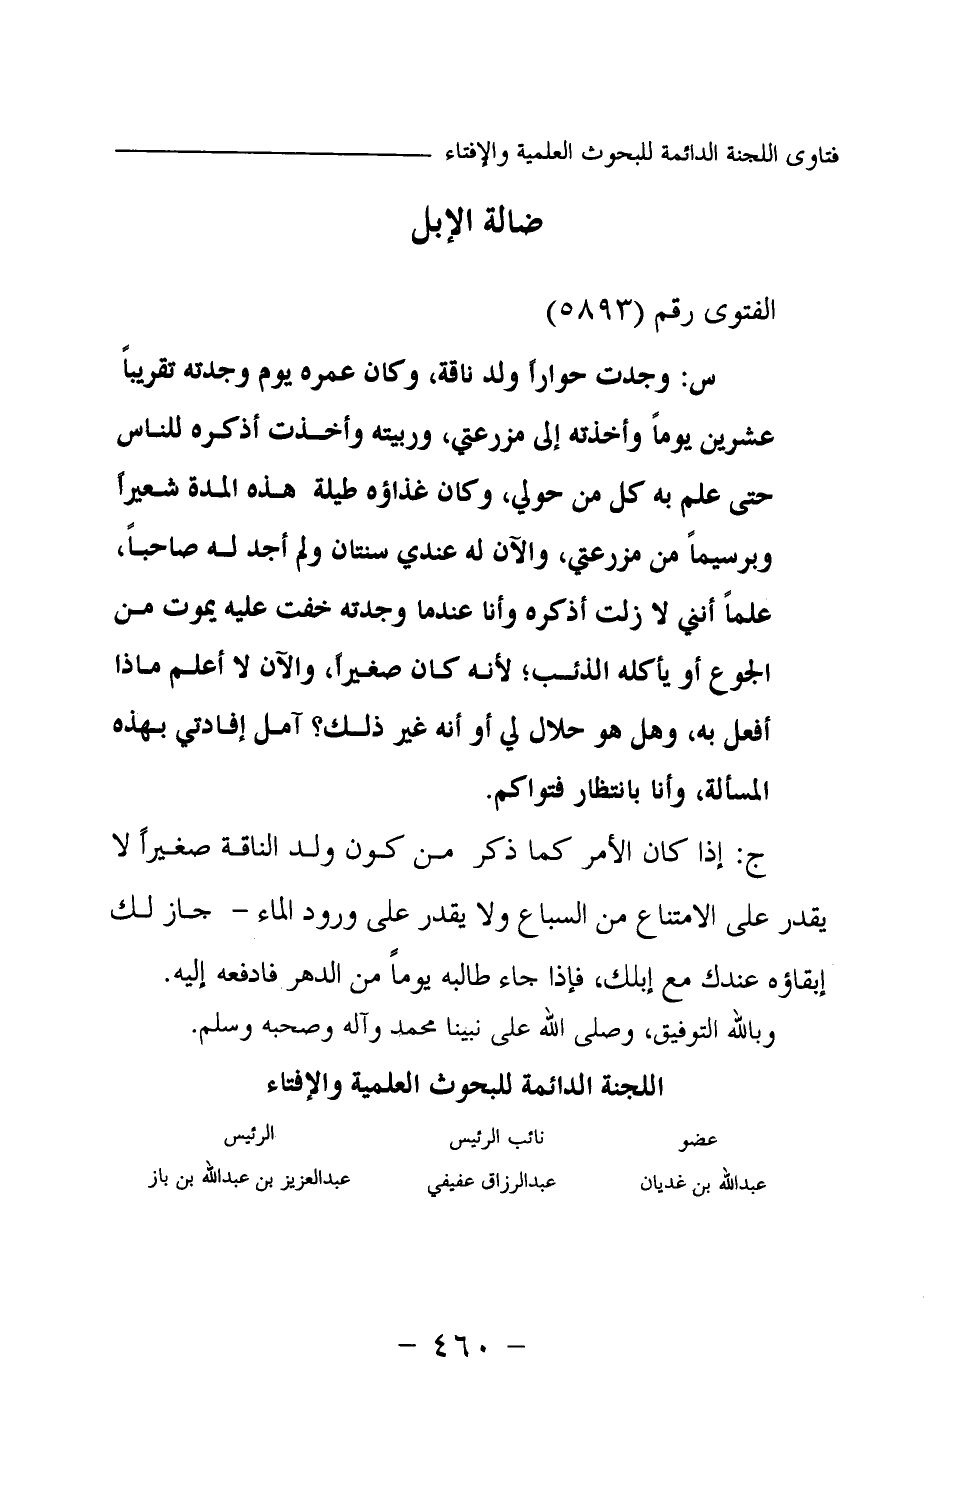 فتاوى اللجنة الدائمة للبحوث العلمية والإفتاء
ضالة الإبل
الفتوى رقم (٥٨٩٣)
س: وجدت حواراً ولد ناقة، وكان عمره يوم وجدته تقريباً
عشرين يوماً وأخذته إلى مزرعتي، وربيته وأخذت أذكره للناس
حتى علم به كل من حولي، وكان غذاؤه طيلة هذه المدة شعيراً
وبرسيماً من مزرعتي، والآن له عندي سنتان ولم أجد له صاحباً،
علماً أنني لا زلت أذكره وأنا عندما وجدته خفت عليه يموت من
الجوع أو يأكله الذئب؛ لأنه كان صغيراً، والآن لا أعلم ماذا
أفعل به، وهل هو حلال لي أو أنه غير ذلك؟ آمل إفادتي بهذه
المسألة، وأنا بانتظار فتواكم.
ج: إذا كان الأمر كما ذكر من كون ولد الناقة صغيراً لا
يقدر على الامتناع من السباع ولا يقدر على ورود الماء - جاز لك
إبقاؤه عندك مع إبلك، فإذا جاء طالبه يوماً من الدهر فادفعه إليه.
وبالله التوفيق، وصلى الله على نبينا محمد وآله وصحبه وسلم.
اللجنة الدائمة للبحوث العلمية والإفتاء
عضو نائب الرئيس الرئيس
عبدالله بن غديان عبدالرزاق عفيفي عبدالعزيز بن عبدالله بن باز
- ٤٦٠ -